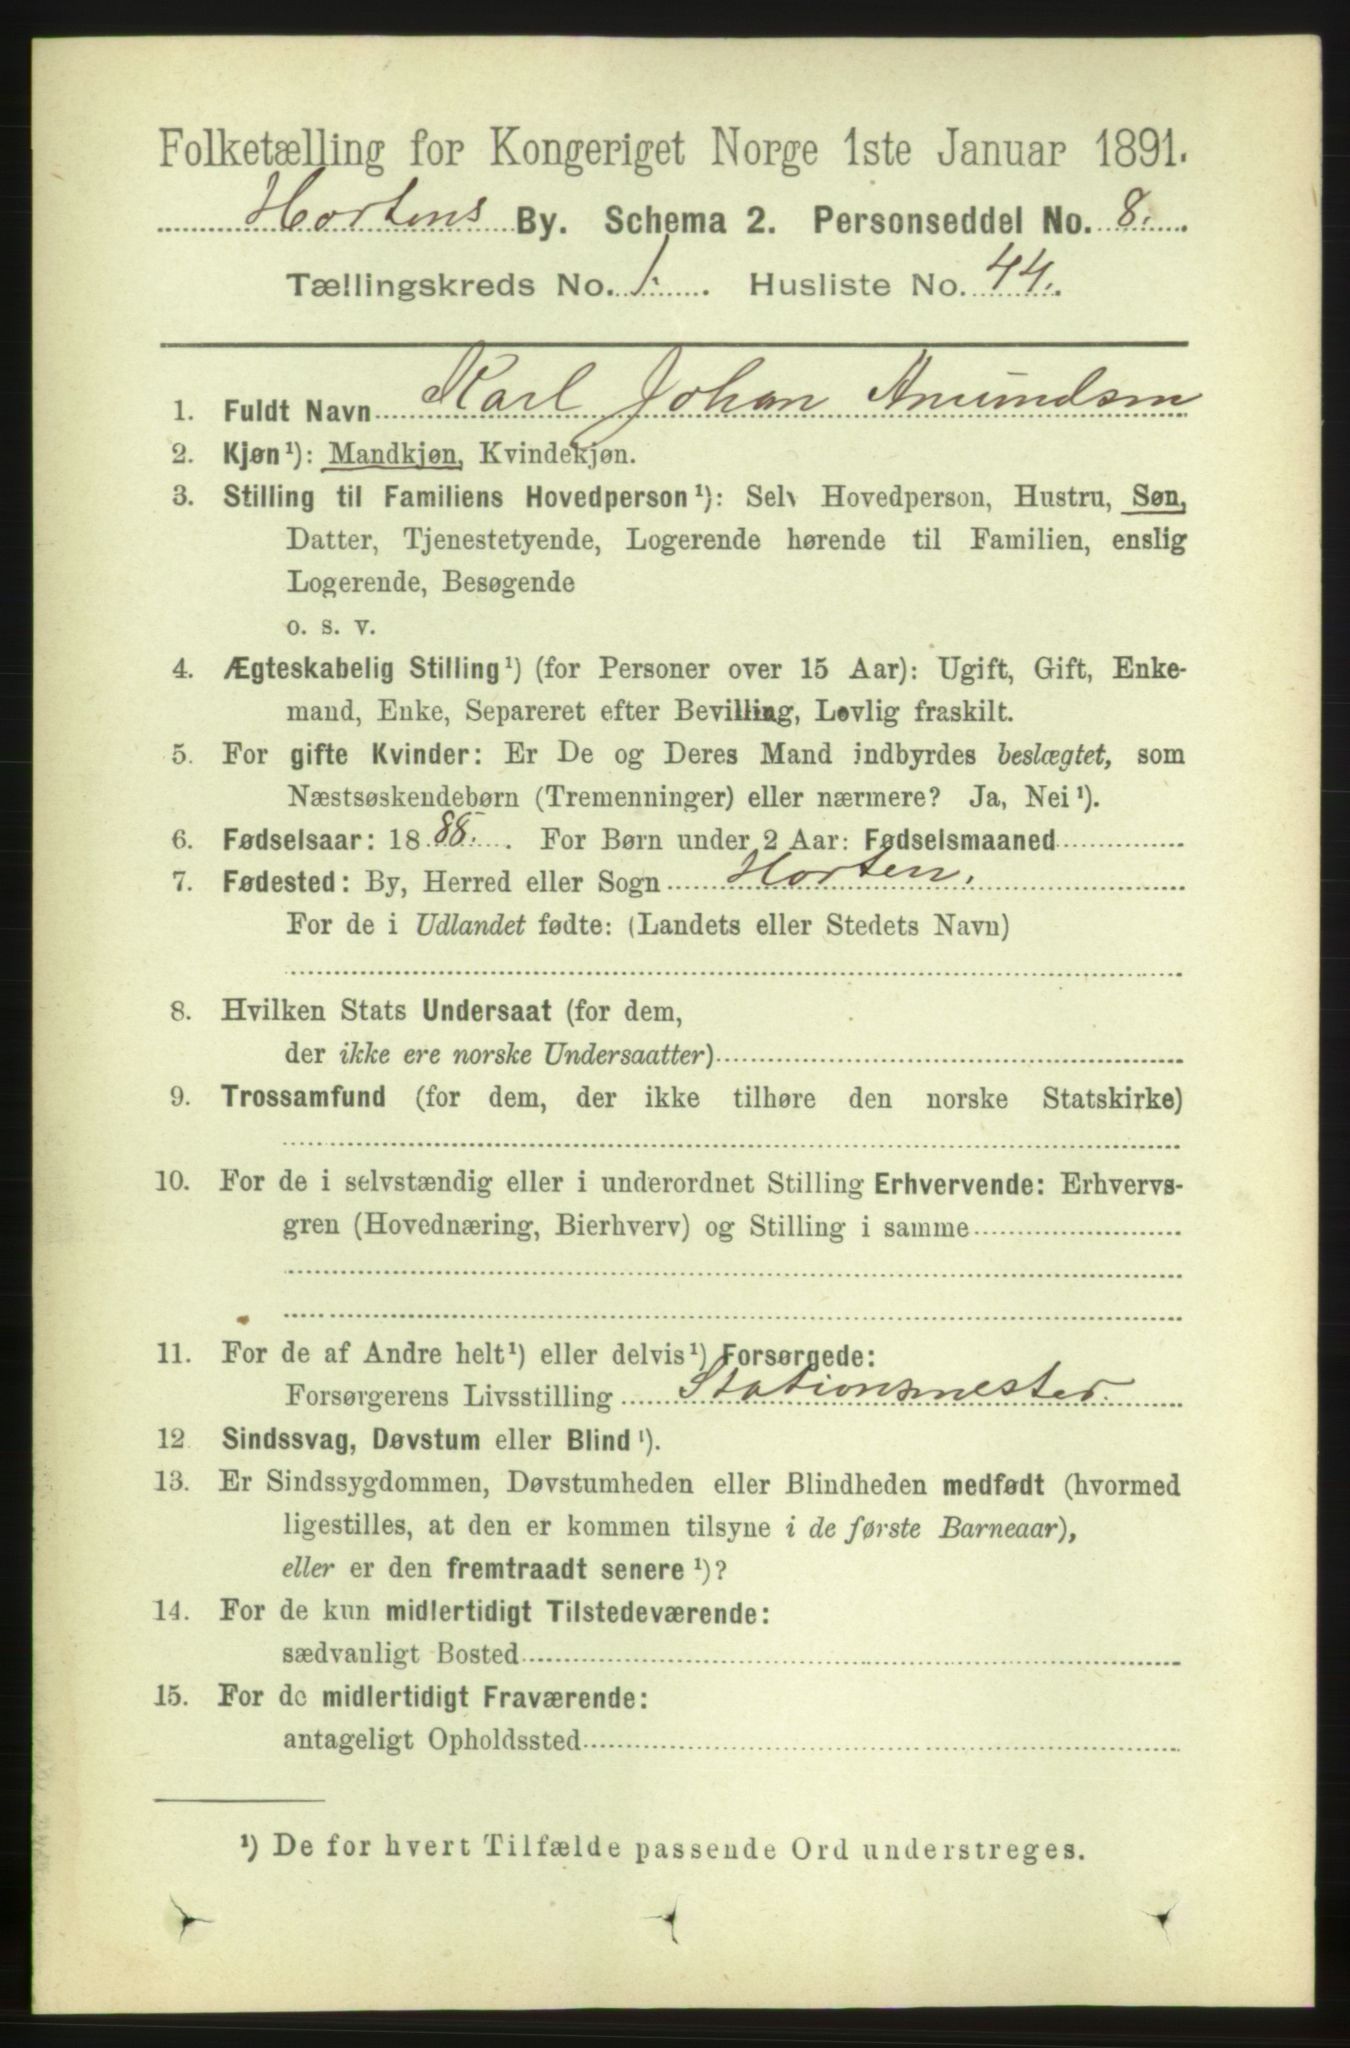 Folketælling for Kongeriget Norge 1ste Januar 1891.
Hortens By. Schema 2. Personseddel No. 8.
Tællingskreds No. 1. Husliste No. 44.
1. Fuldt Navn Karl Johan Amundsen
2. Kjøn¹): Mandkjøn, Kvindekjøn.
3. Stilling til Familiens Hovedperson¹): Selv Hovedperson, Hustru, Søn,
Datter, Tjenestetyende, Logerende hørende til Familien, enslig
Logerende, Besøgende
o. s. v.
4. Ægteskabelig Stilling¹) (for Personer over 15 Aar): Ugift, Gift, Enke-
mand, Enke, Separeret efter Bevilling, Lovlig fraskilt.
5. For gifte Kvinder: Er De og Deres Mand indbyrdes beslægtet, som
Næstsøskendebørn (Tremenninger) eller nærmere? Ja, Nei¹).
6. Fødselsaar: 1888. For Børn under 2 Aar: Fødselsmaaned
7. Fødested: By, Herred eller Sogn Horten.
For de i Udlandet fødte: (Landets eller Stedets Navn)
8. Hvilken Stats Undersaat (for dem,
der ikke ere norske Undersaatter)
9. Trossamfund (for dem, der ikke tilhøre den norske Statskirke)
10. For de i selvstændig eller i underordnet Stilling Erhvervende: Erhvervs-
gren (Hovednæring, Bierhverv) og Stilling i samme
11. For de af Andre helt¹) eller delvis¹) Forsørgede:
Forsørgerens Livsstilling Stationsmester.
12 Sindssvag, Døvstum eller Blind¹).
13. Er Sindssygdommen, Døvstumheden eller Blindheden medfødt (hvormed
ligestilles, at den er kommen tilsyne i de første Barneaar),
eller er den fremtraadt senere¹)?
14. For de kun midlertidigt Tilstedeværende:
sædvanligt Bosted
15. For de midlertidigt Fraværende:
antageligt Opholdssted
¹) De for hvert Tilfælde passende Ord understreges.